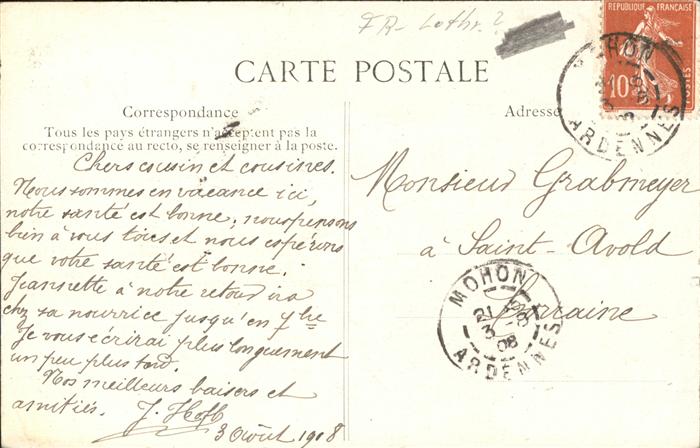 FR- Lothr.?
RÉPUBLIQUE FRANÇAISE
10c
POSTES
CARTE POSTALE
Correspondance
Tous les pays étrangers n'acceptent pas la
correspondance au recto, se renseigner à la poste.
Adresse
Chers cousin et cousines.
Nous sommes en vacance ici,
notre santé est bonne; nous pensons
bien à vous tous et nous espérons
que votre santé est bonne.
Jeannette à notre retour ira
chez sa nourrice jusqu'en 7bre
Je vous écrirai plus longuement
un peu plus tard.
Nos meilleurs baisers et
amitiés.
3 Août 1908
Monsieur Grabmeyer
à Saint-Avold
Lorraine
MOHON
ARDENNES
MOHON
ARDENNES